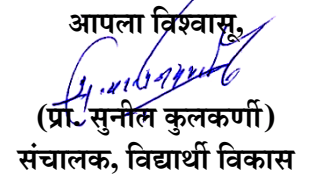 आपला विश्वासू,
(प्रा. सुनील कुलकर्णी)
संचालक, विद्यार्थी विकास